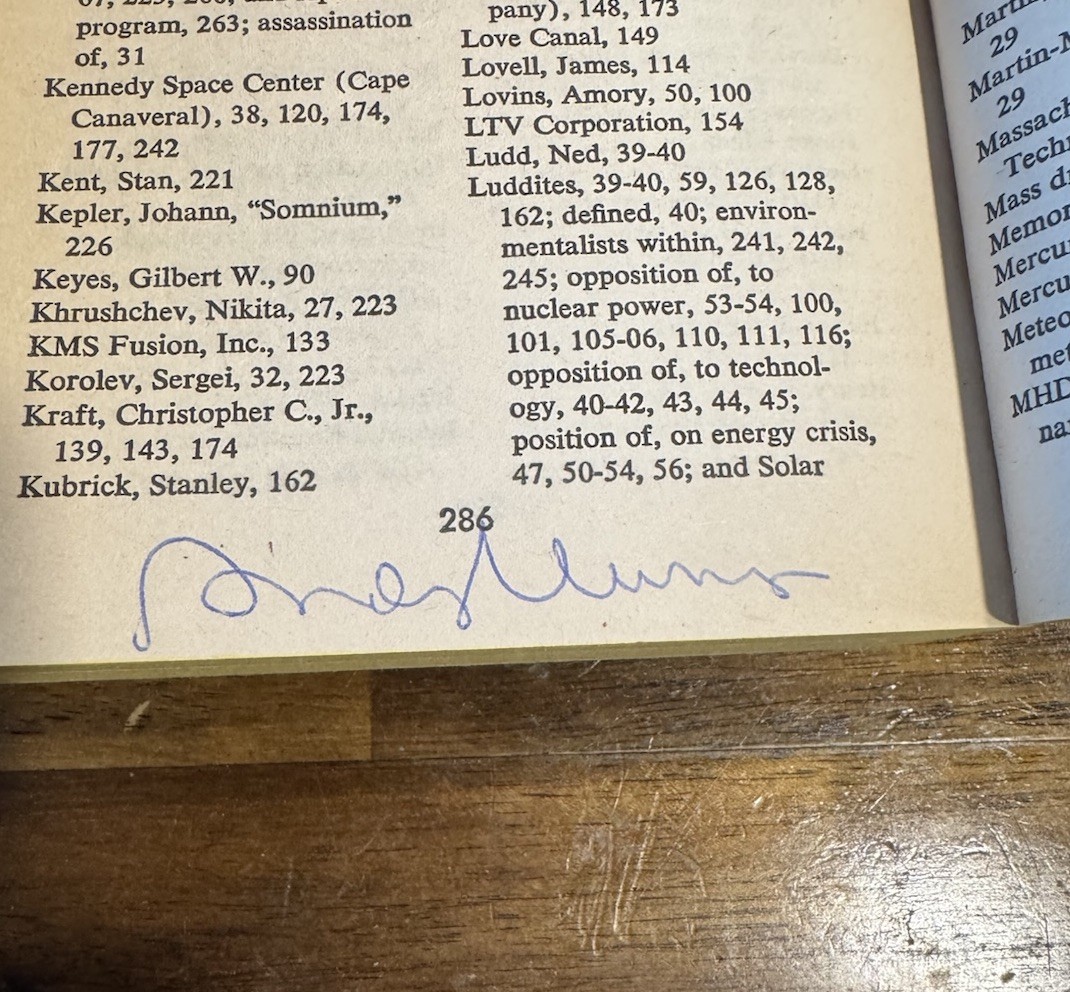 program, 263; assassination
of, 31
Kennedy Space Center (Cape
Canaveral), 38, 120, 174,
177, 242
Kent, Stan, 221
Kepler, Johann, “Somnium,”
226
Keyes, Gilbert W., 90
Khrushchev, Nikita, 27, 223
KMS Fusion, Inc., 133
Korolev, Sergei, 32, 223
Kraft, Christopher C., Jr.,
139, 143, 174
Kubrick, Stanley, 162
pany), 148, 173
Love Canal, 149
Lovell, James, 114
Lovins, Amory, 50, 100
LTV Corporation, 154
Ludd, Ned, 39-40
Luddites, 39-40, 59, 126, 128,
162; defined, 40; environ-
mentalists within, 241, 242,
245; opposition of, to
nuclear power, 53-54, 100,
101, 105-06, 110, 111, 116;
opposition of, to technol-
ogy, 40-42, 43, 44, 45;
position of, on energy crisis,
47, 50-54, 56; and Solar
286
29
29
Mass
MHD